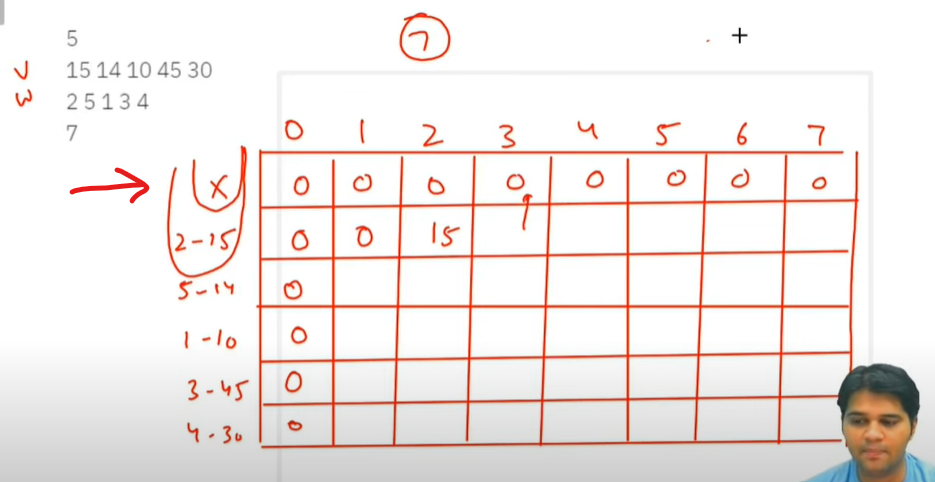 7
5
V 15 14 10 45 30
W 2 5 1 3 4
7
0 1 2 3 4 5 6 7
X 0 0 0 0 0 0 0 0
2-15 0 0 15
5-14 0
1-10 0
3-45 0
4-30 0